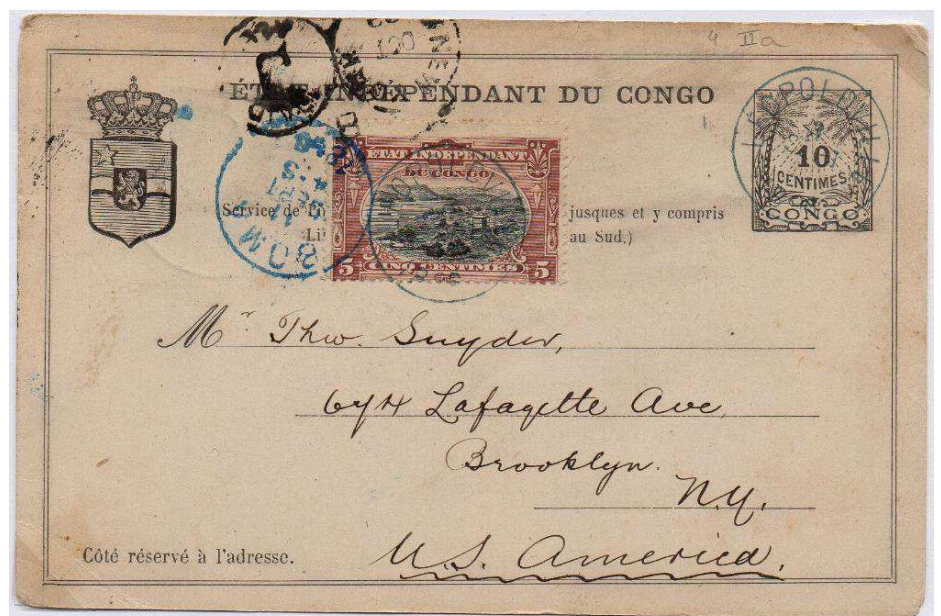 4 IIa
ÉTAT INDÉPENDANT DU CONGO
LEOPOLDVILLE
10
CENTIMES
CONGO
ETAT INDEPENDANT
DU CONGO
5 CINQ CENTIMES 5
Service de
jusques et y compris
au Sud.)
BOMA
OCT
Mr Theo. Snyder,
674 Lafayette Ave
Brooklyn.
N.Y.
U.S. America.
Côté réservé à l'adresse.